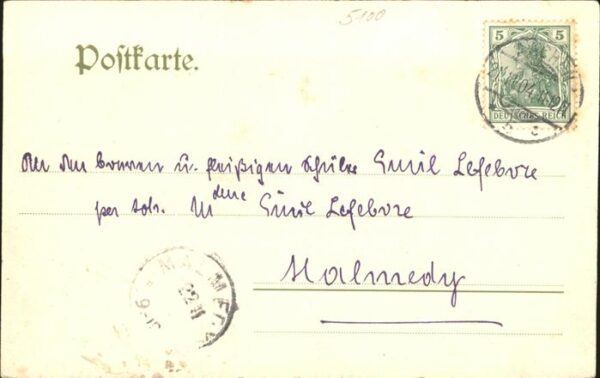 5100
Postkarte.
5 5
DEUTSCHES REICH
An den braven u. fleißigen Schüler Emil Lefebvre
per adr. Mdme Emil Lefebvre
Malmedy
MALMEDY
22 11